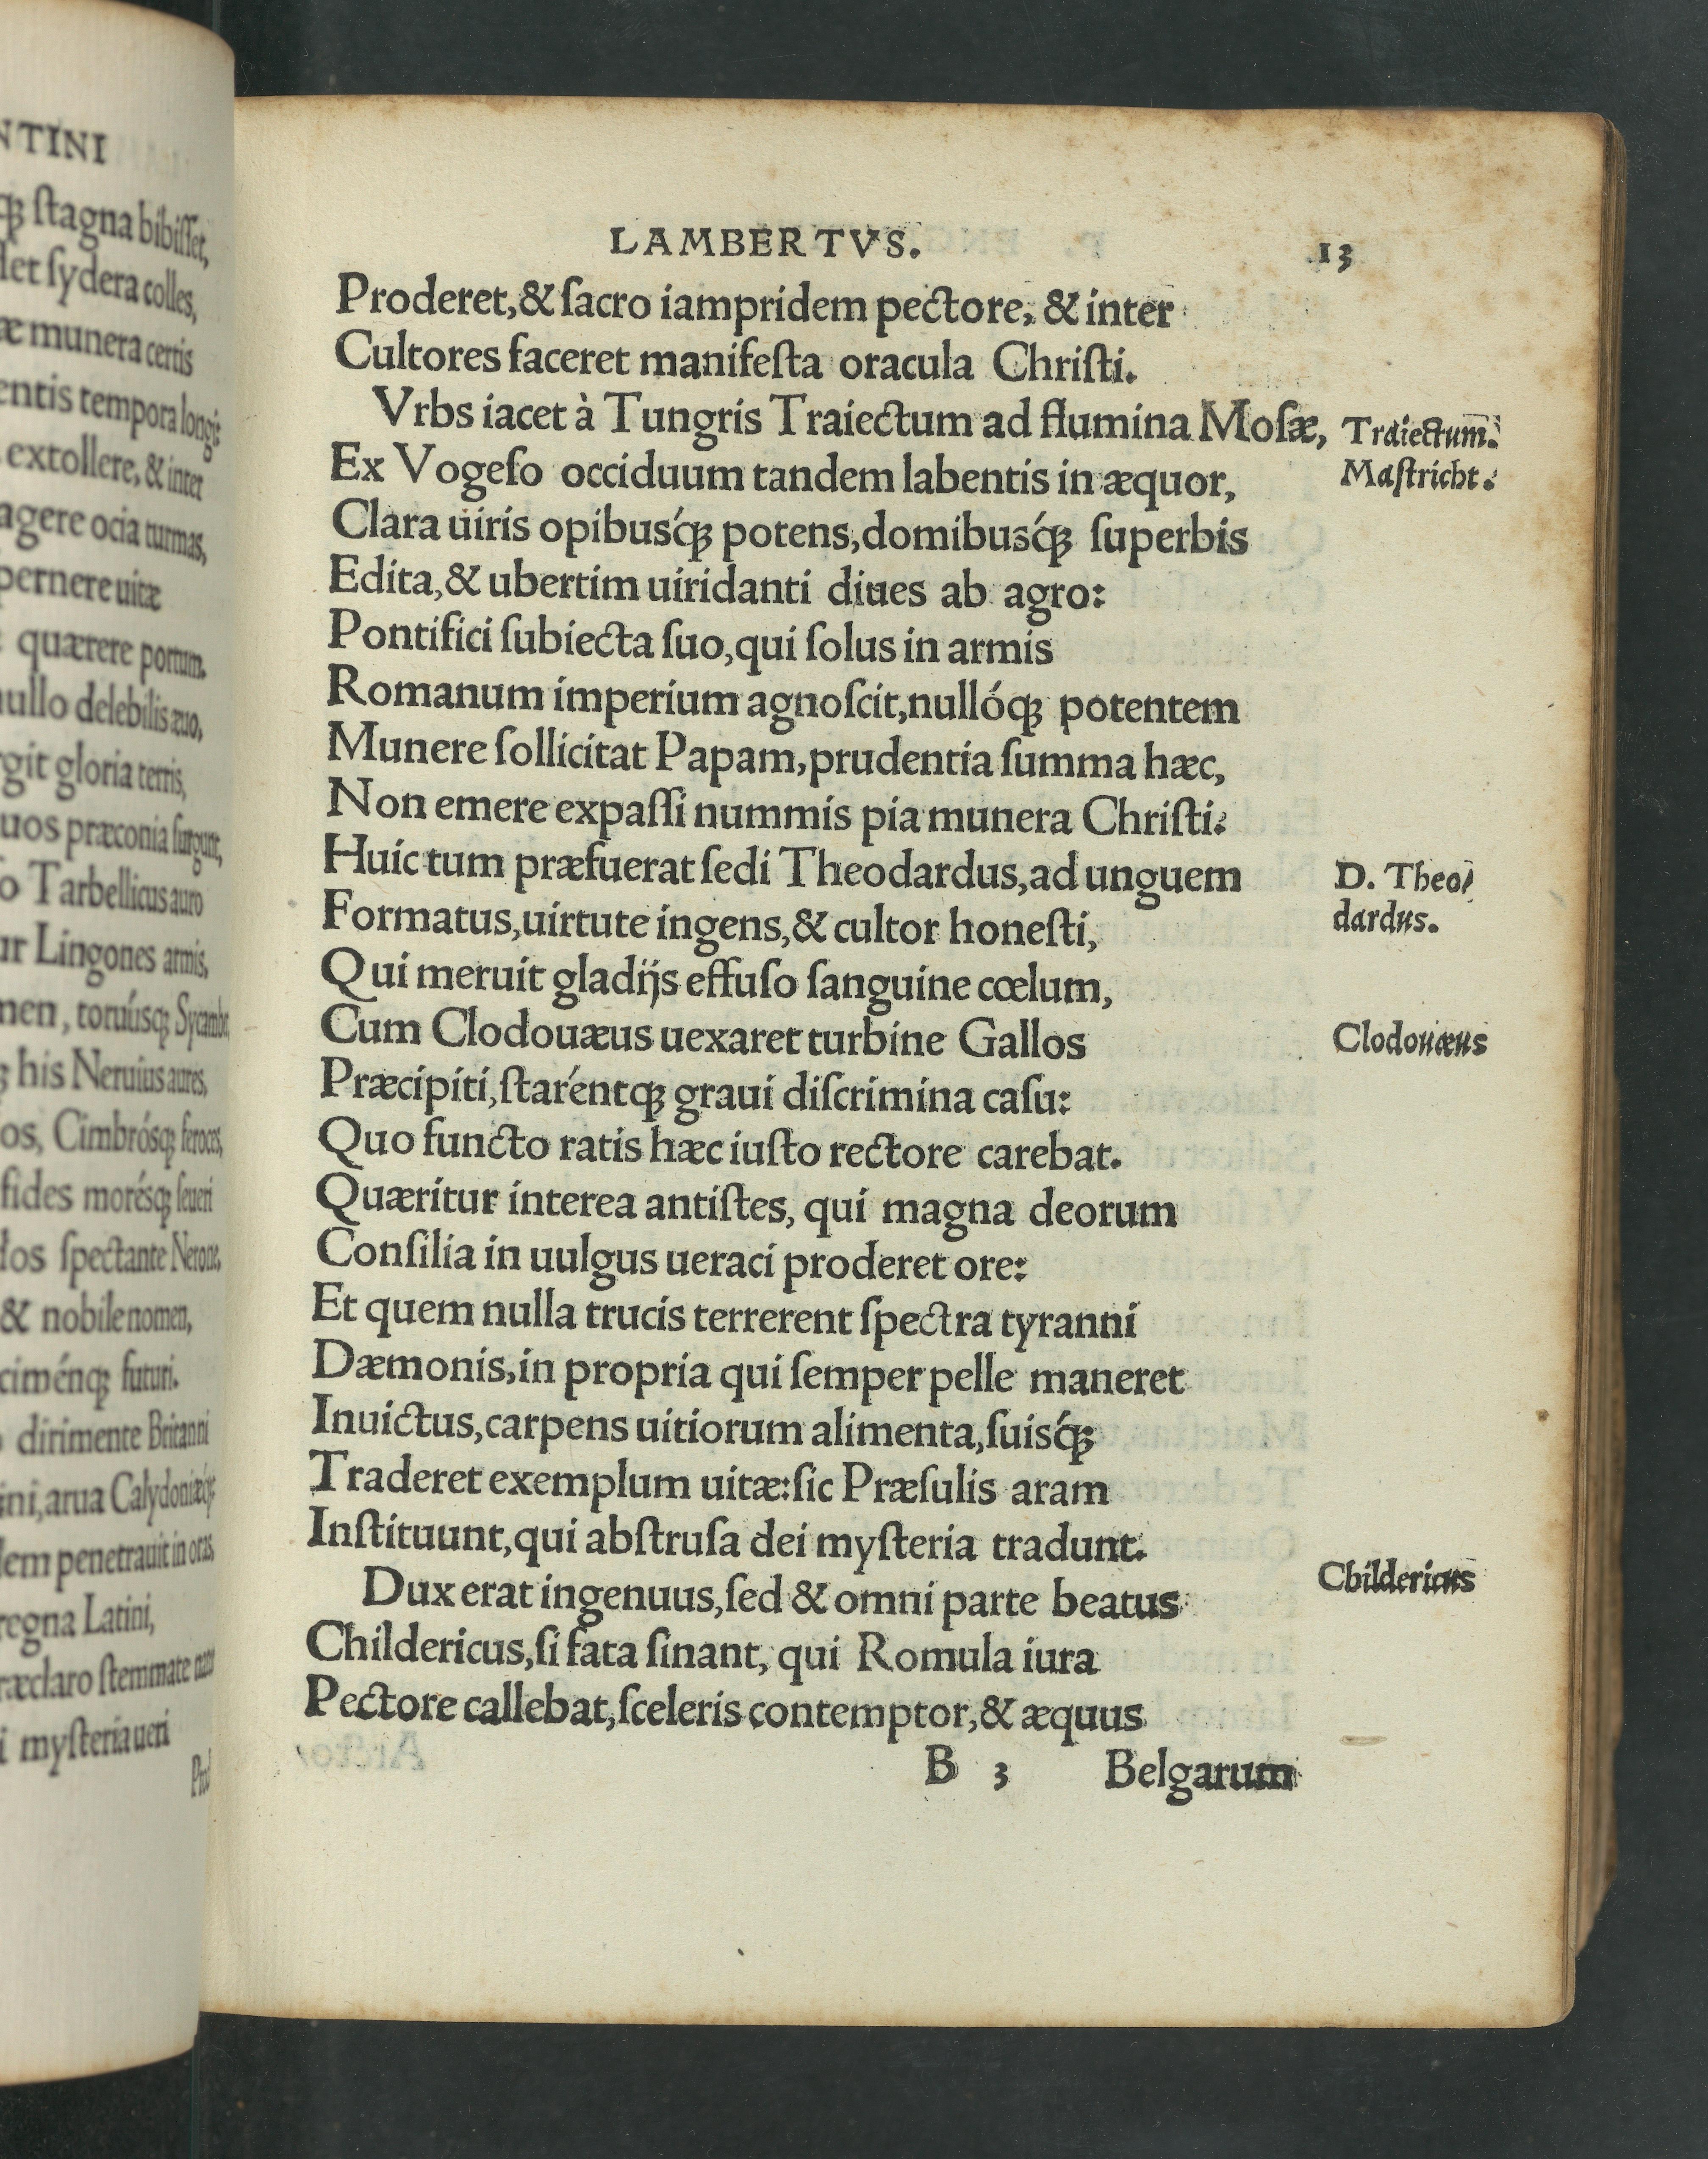 NTINI
stagna bibiſſet,
ſydera colles,
munera certis
entis tempora longis
extollere, & inter
agere ocia turmas,
pernere uitæ
quærere portum.
nullo delebilis æuo,
gloria terris,
præconia ſurgunt,
Tarbellicus auro
Lingones armis,
toruúsqꝫ
his Neruius aures,
Cimbrósqꝫ feroces,
fides morésqꝫ ſeueri
ſpectante Nerone,
& nobile nomen,
futuri.
dirimente Britanni
arua
penetrauit in oras,
regna Latini,
ſtemmate
myſteria ueri
LAMBERTVS. 13
Proderet,& ſacro iampridem pectore, & inter
Cultores faceret manifeſta oracula Chriſti.
Vrbs iacet à Tungris Traiectum ad flumina Moſæ,
Traiectum.
Maſtricht.
Ex Vogeſo occiduum tandem labentis in æquor,
Clara uiris opibusq́ꝫ potens,domibusq́ꝫ ſuperbis
Edita,& ubertim uiridanti diues ab agro:
Pontifici ſubiecta ſuo,qui ſolus in armis
Romanum imperium agnoſcit,nullóqꝫ potentem
Munere ſollicitat Papam,prudentia ſumma hæc,
Non emere expaſſi nummis pia munera Chriſti.
Huic tum præfuerat ſedi Theodardus,ad unguem
D. Theo/
dardus.
Formatus,uirtute ingens,& cultor honeſti,
Qui meruit gladijs effuſo ſanguine cœlum,
Cum Clodouæus uexaret turbine Gallos
Clodouæus
Præcipiti,ſtaréntqꝫ graui diſcrimina caſu:
Quo functo ratis hæc iuſto rectore carebat.
Quæritur interea antiſtes, qui magna deorum
Conſilia in uulgus ueraci proderet ore:
Et quem nulla trucis terrerent ſpectra tyranni
Dæmonis,in propria qui ſemper pelle maneret
Inuictus,carpens uitiorum alimenta,ſuisq́ꝫ
Traderet exemplum uitæ:ſic Præſulis aram
Inſtituunt,qui abſtruſa dei myſteria tradunt.
Dux erat ingenuus,ſed & omni parte beatus
Childericus
Childericus,ſi fata ſinant, qui Romula iura
Pectore callebat,ſceleris contemptor,& æquus
B 3 Belgarum